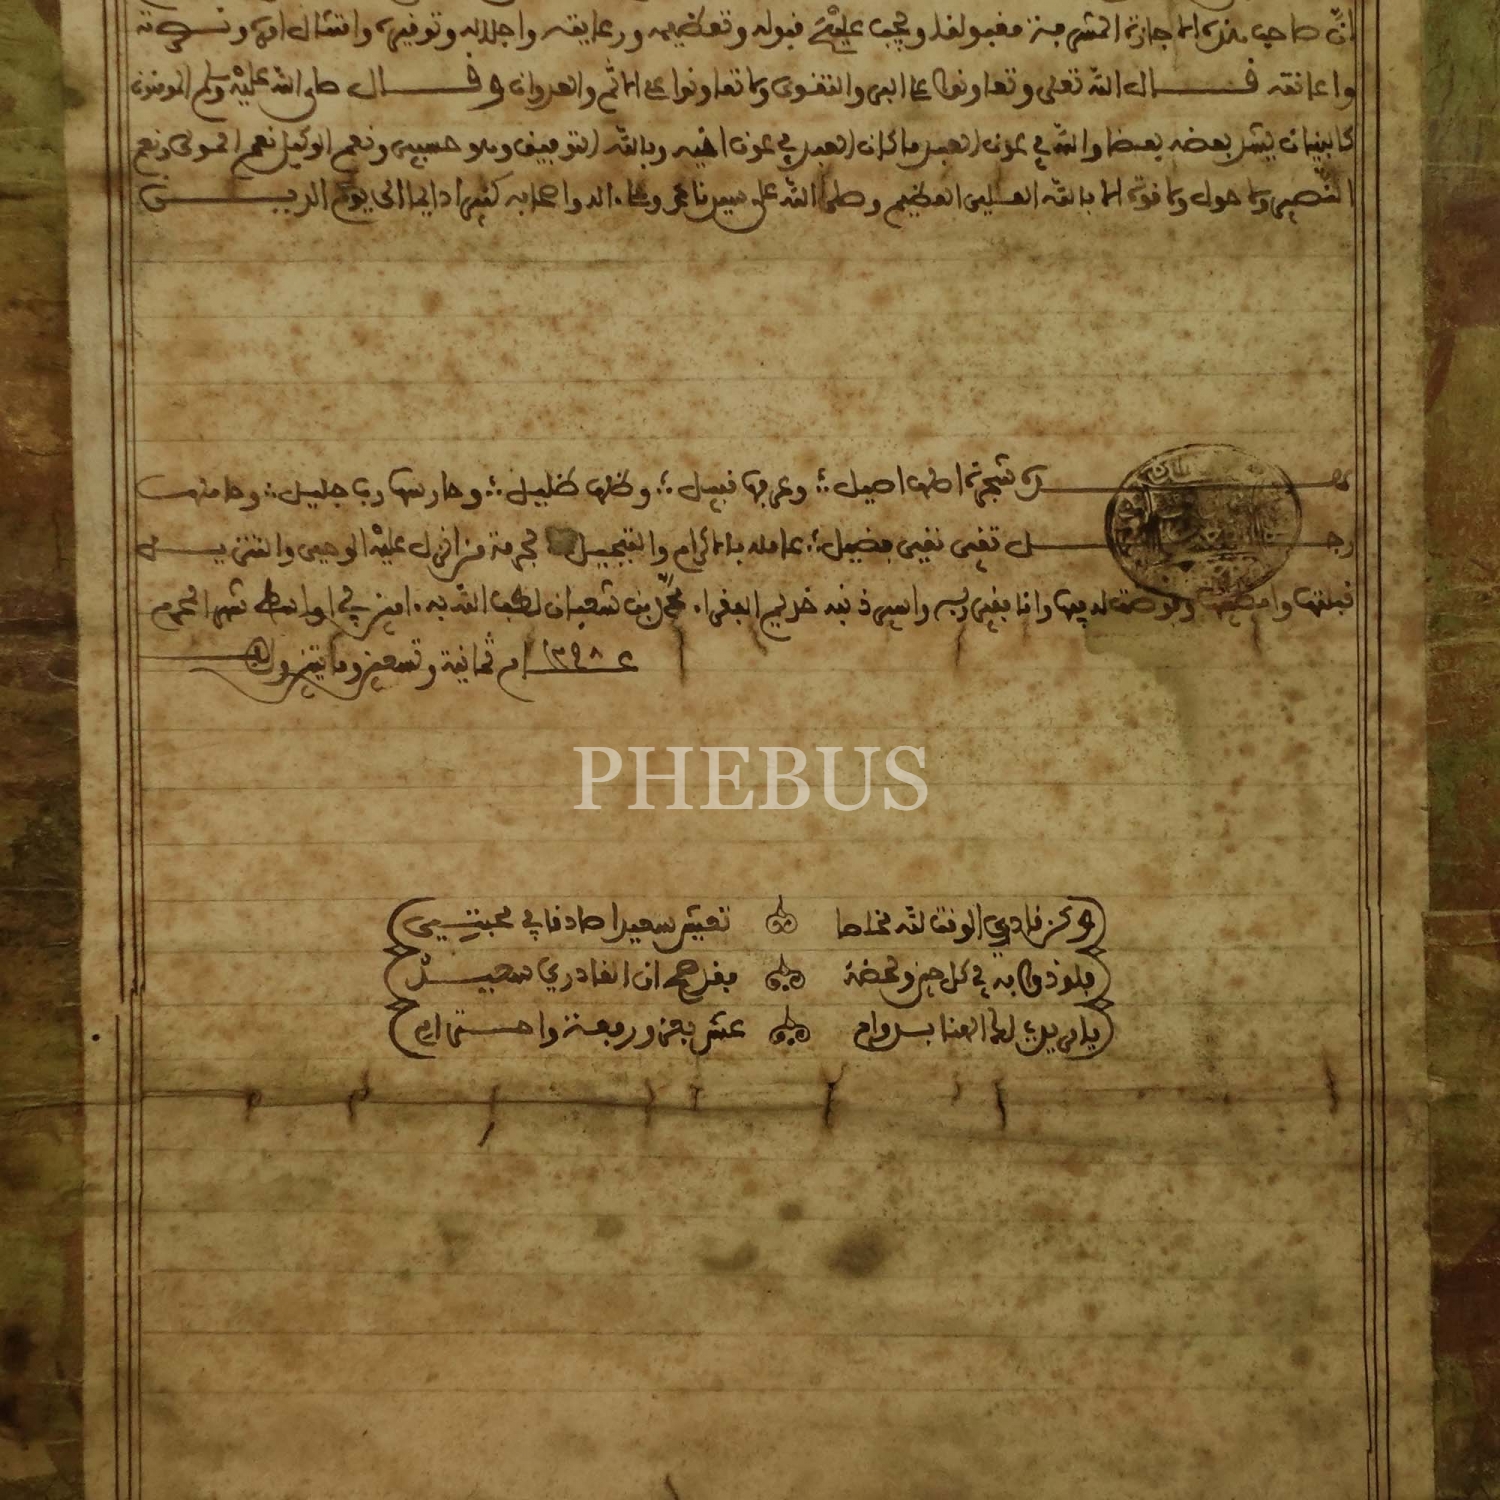 ان صاحب هذه الاجازة المشرفة مقبولة ويجب عليكم قبوله وتعظيمه ورعايته واجلاله وتوقيره وامتثال امره ونصرته
واعانته قال الله تعلى وتعاونوا على البر والتقوى ولا تعاونوا على الاثم والعدوان وقال صلى الله عليه وسلم المومنون
كالبنيان يشد بعضه بعضا والله في عون العبد ما كان العبد في عون اخيه وبالله التوفيق وهو حسبي ونعم الوكيل نعم المولى ونعم
النصير ولا حول ولا قوة الا بالله العلي العظيم وصلى الله على سيدنا محمد وعلى اله واصحابه كثيرا دايما الى يوم الدين
شجرة اصلها اصيل وعرقها نبيل وظلها ظليل وحارسها رب جليل وحاملها
رجل تقي نقي فضيل عامله بالاكرام والتبجيل بحرمة من انزل عليه الوحي والتنزيل
قبلتها وامضيتها وانا فقير ربه واسير ذنبه خديم الفقراء محمد بن شعبان لطف الله به امين في اواسط شهر المحرم
ع ١٢٩٨ ام ثمانية وتسعين ومايتين والف
PHEBUS
وكن قادري الوقت لله مخلصا تعيش سعيدا صادقا في محبتي
فلوذوا به في كل حين ولحضة
يا مريد لك الهنا بدوام عش بعز ورفعة واحترام